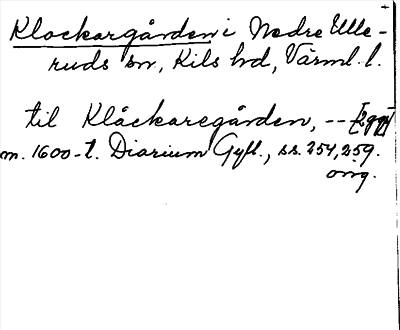 Klockargården i Nedre Ulle-
ruds sn, Kils hd, Värml. l.
til Klåckaregården, -- [Egg]
m. 1600-t. Diarium Gyll., ss. 254, 259.
omg.